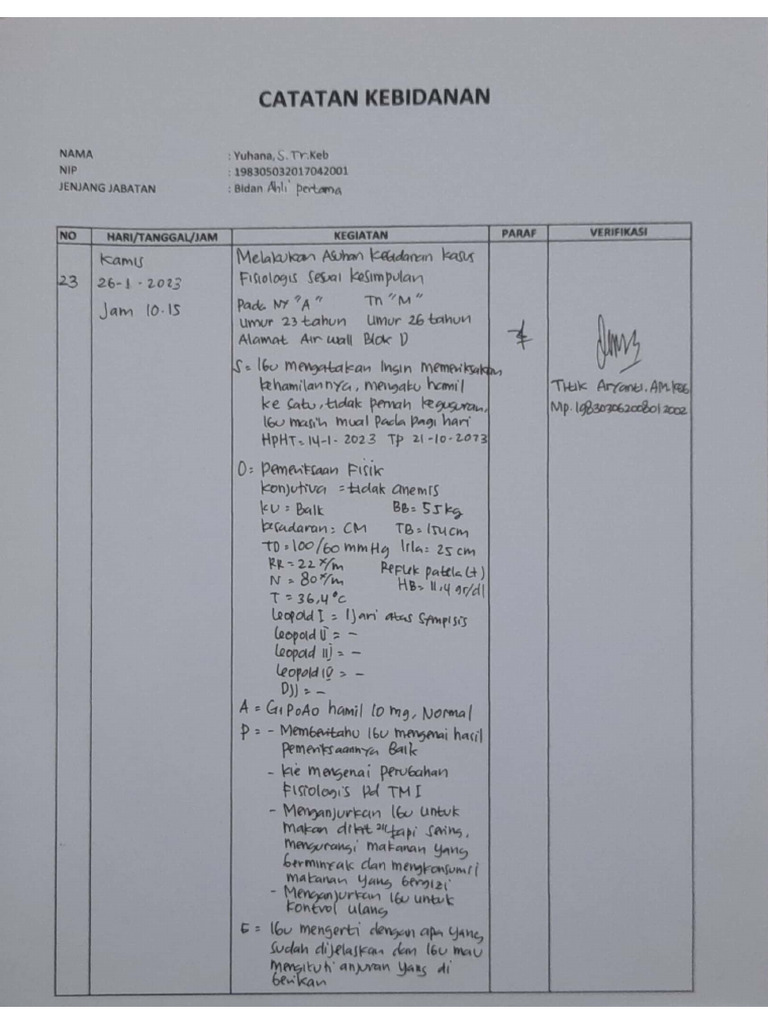 CATATAN KEBIDANAN
NAMA : Yuhana, S.Tr.Keb
NIP : 198305032017042001
JENJANG JABATAN : Bidan Ahli pertama
NO HARI/TANGGAL/JAM KEGIATAN PARAF VERIFIKASI
23
Kamis
26-1-2023
Jam 10.15
Melakukan Asuhan Kebidanan Kasus
Fisiologis sesuai Kesimpulan
Pada NY "A" Tn "M"
umur 23 tahun umur 26 tahun
Alamat Air wall Blok D
S = Ibu mengatakan Ingin memeriksakan
kehamilannya, mengaku hamil
ke satu, tidak pernah keguguran,
Ibu masih mual pada pagi hari
HPHT = 14-1-2023 TP 21-10-2023
O = Pemeriksaan Fisik
Konjutiva = tidak anemis
KU = Baik BB = 55 kg
kesadaran = CM TB = 154 cm
TD = 100/60 mmHg lila = 25 cm
RR = 22 x/m Reflek patela (+)
N = 80 x/m HB = 11,4 gr/dl
T = 36,4°C
Leopold I = 1 Jari atas Sympisis
Leopold II = -
Leopold III = -
Leopold IV = -
DJJ = -
A = G1P0A0 hamil 10 mg, Normal
P = - Memberitahu Ibu mengenai hasil
pemeriksaannya Baik
- kie mengenai perubahan
Fisiologis pd TM I
- Menganjurkan Ibu untuk
makan dikit2 tapi sering,
mengurangi makanan yang
berminyak dan mengkonsumsi
makanan yang bergizi
- Menganjurkan Ibu untuk
kontrol ulang
E = Ibu mengerti dengan apa yang
sudah dijelaskan dan Ibu mau
mengikuti anjuran yang di
berikan
Titik Aryanti.AM.Keb
Nip. 198303062008012002